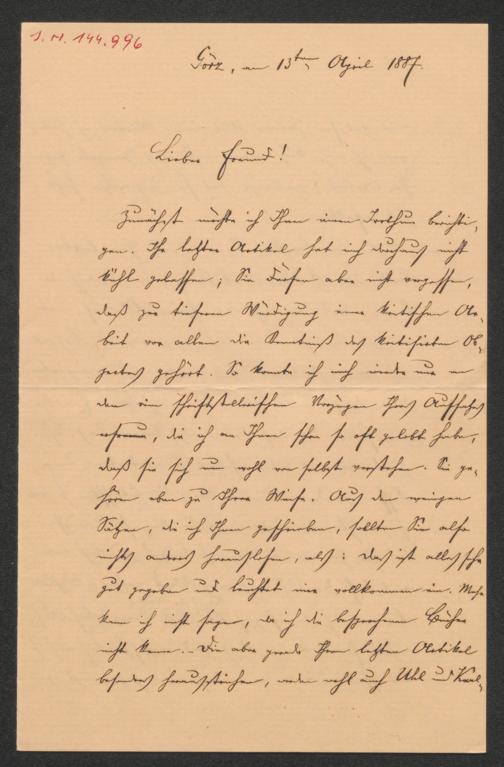 I. N. 144.996
Görz, am 13ten April 1887.
Lieber Freund!
Zunächst möchte ich Ihnen einen Irrthum berichti-
gen. Ihr letzter Artikel hat mich durchaus nicht
kühl gelassen; Sie dürfen aber nicht vergessen,
daß zur tieferen Würdigung einer kritischen Ar-
beit vor allem die Kenntniß des kritisierten Ob-
jectes gehört. So konnte ich mich wieder nur an
den rein schriftstellerischen Vorzügen Ihres Aufsatzes
erfreuen, die ich an Ihnen schon so oft gelobt habe,
daß sie sich nun wohl von selbst verstehen. Sie ge-
hören eben zu Ihrer Weise. Aus den wenigen
Sätzen, die ich Ihnen geschrieben, sollten Sie also
nichts anderes herauslesen, als: das ist alles sehr
gut gegeben und leuchtet mir vollkommen ein. Mehr
kann ich nicht sagen, da ich die besprochenen Bücher
nicht kenne. Die aber gerade Ihren letzten Artikel
besonders herausstreichen, werden wohl auch Uhl und